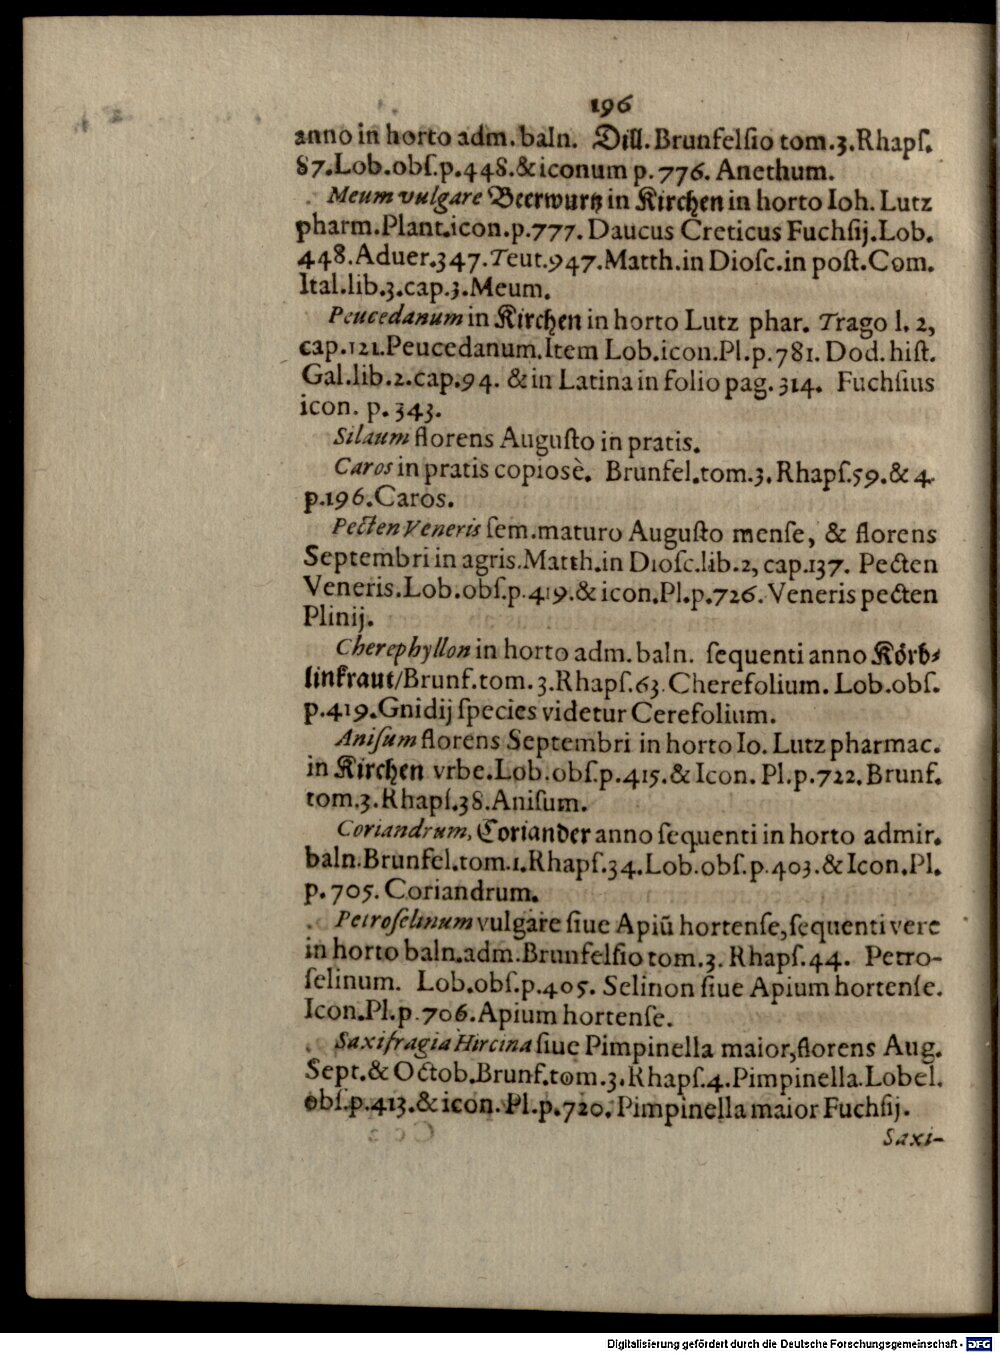 196
anno in horto adm. baln. Dill. Brunfelſio tom.3.Rhapſ.
87.Lob.obſ.p.448.& iconum p. 776. Anethum.
Meum vulgare Beerwurtz in Kirchen in horto Ioh. Lutz
pharm.Plant.icon.p.777. Daucus Creticus Fuchſij.Lob.
448.Aduer.347.Teut.947.Matth.in Dioſc.in poſt.Com.
Ital.lib.3.cap.3.Meum.
Peucedanum in Kirchen in horto Lutz phar. Trago l. 2,
cap.121.Peucedanum.Item Lob.icon.Pl.p.781. Dod. hiſt.
Gal.lib.2.cap.94. & in Latina in folio pag. 314. Fuchſius
icon. p. 343.
Silaum florens Auguſto in pratis.
Caros in pratis copiosè. Brunfel.tom.3. Rhapſ.59.& 4.
p.196.Caros.
Pecten Veneris ſem.maturo Auguſto menſe, & florens
Septembri in agris.Matth.in Dioſc.lib.2, cap.137. Pecten
Veneris.Lob.obſ.p.419.& icon.Pl.p.726. Veneris pecten
Plinij.
Cherephyllon in horto adm. baln. ſequenti anno Körb⸗
linkraut/Brunf.tom. 3.Rhapſ.63. Cherefolium. Lob.obſ.
p.419.Gnidij ſpecies videtur Cerefolium.
Aniſum florens Septembri in horto Io. Lutz pharmac.
in Kirchen vrbe.Lob.obſ.p.415.& Icon. Pl.p.722. Brunf.
tom.3.Rhapſ.38.Aniſum.
Coriandrum, Coriander anno ſequenti in horto admir.
baln.Brunfel.tom.1.Rhapſ.34.Lob.obſ.p.403.& Icon.Pl.
p. 705. Coriandrum.
Petroſelinum vulgare ſiue Apiũ hortenſe,ſequenti vere
in horto baln.adm.Brunfelſio tom.3. Rhapſ.44. Petro-
ſelinum. Lob.obſ.p.405. Selinon ſiue Apium hortenſe.
Icon.Pl.p.706.Apium hortenſe.
Saxifragia Hircina ſiue Pimpinella maior,florens Aug.
Sept.& Octob.Brunf.tom.3.Rhapſ.4.Pimpinella.Lobel.
obſ.p.413.& icon. Pl.p.720. Pimpinella maior Fuchſij.
Saxi-
Digitalisierung gefördert durch die Deutsche Forschungsgemeinschaft - DFG